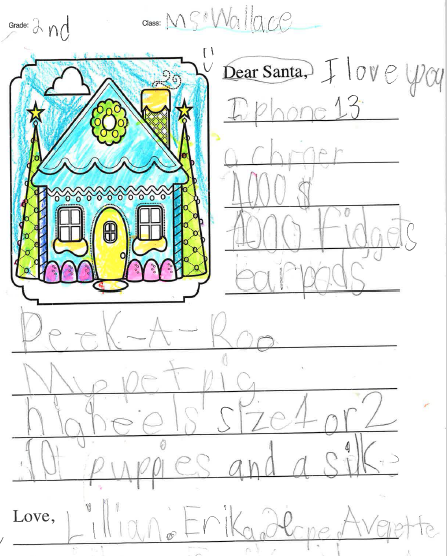 Grade: 2nd Class: Ms. Wallace
Dear Santa, I love you
Iphone 13
a chrger
1000 $
1000 fidgets
earpods
Peek-A-Roo
My pet pig
higheels size 1 or 2
10 puppies and a silk-
Love, Lillian. Erika. Averette